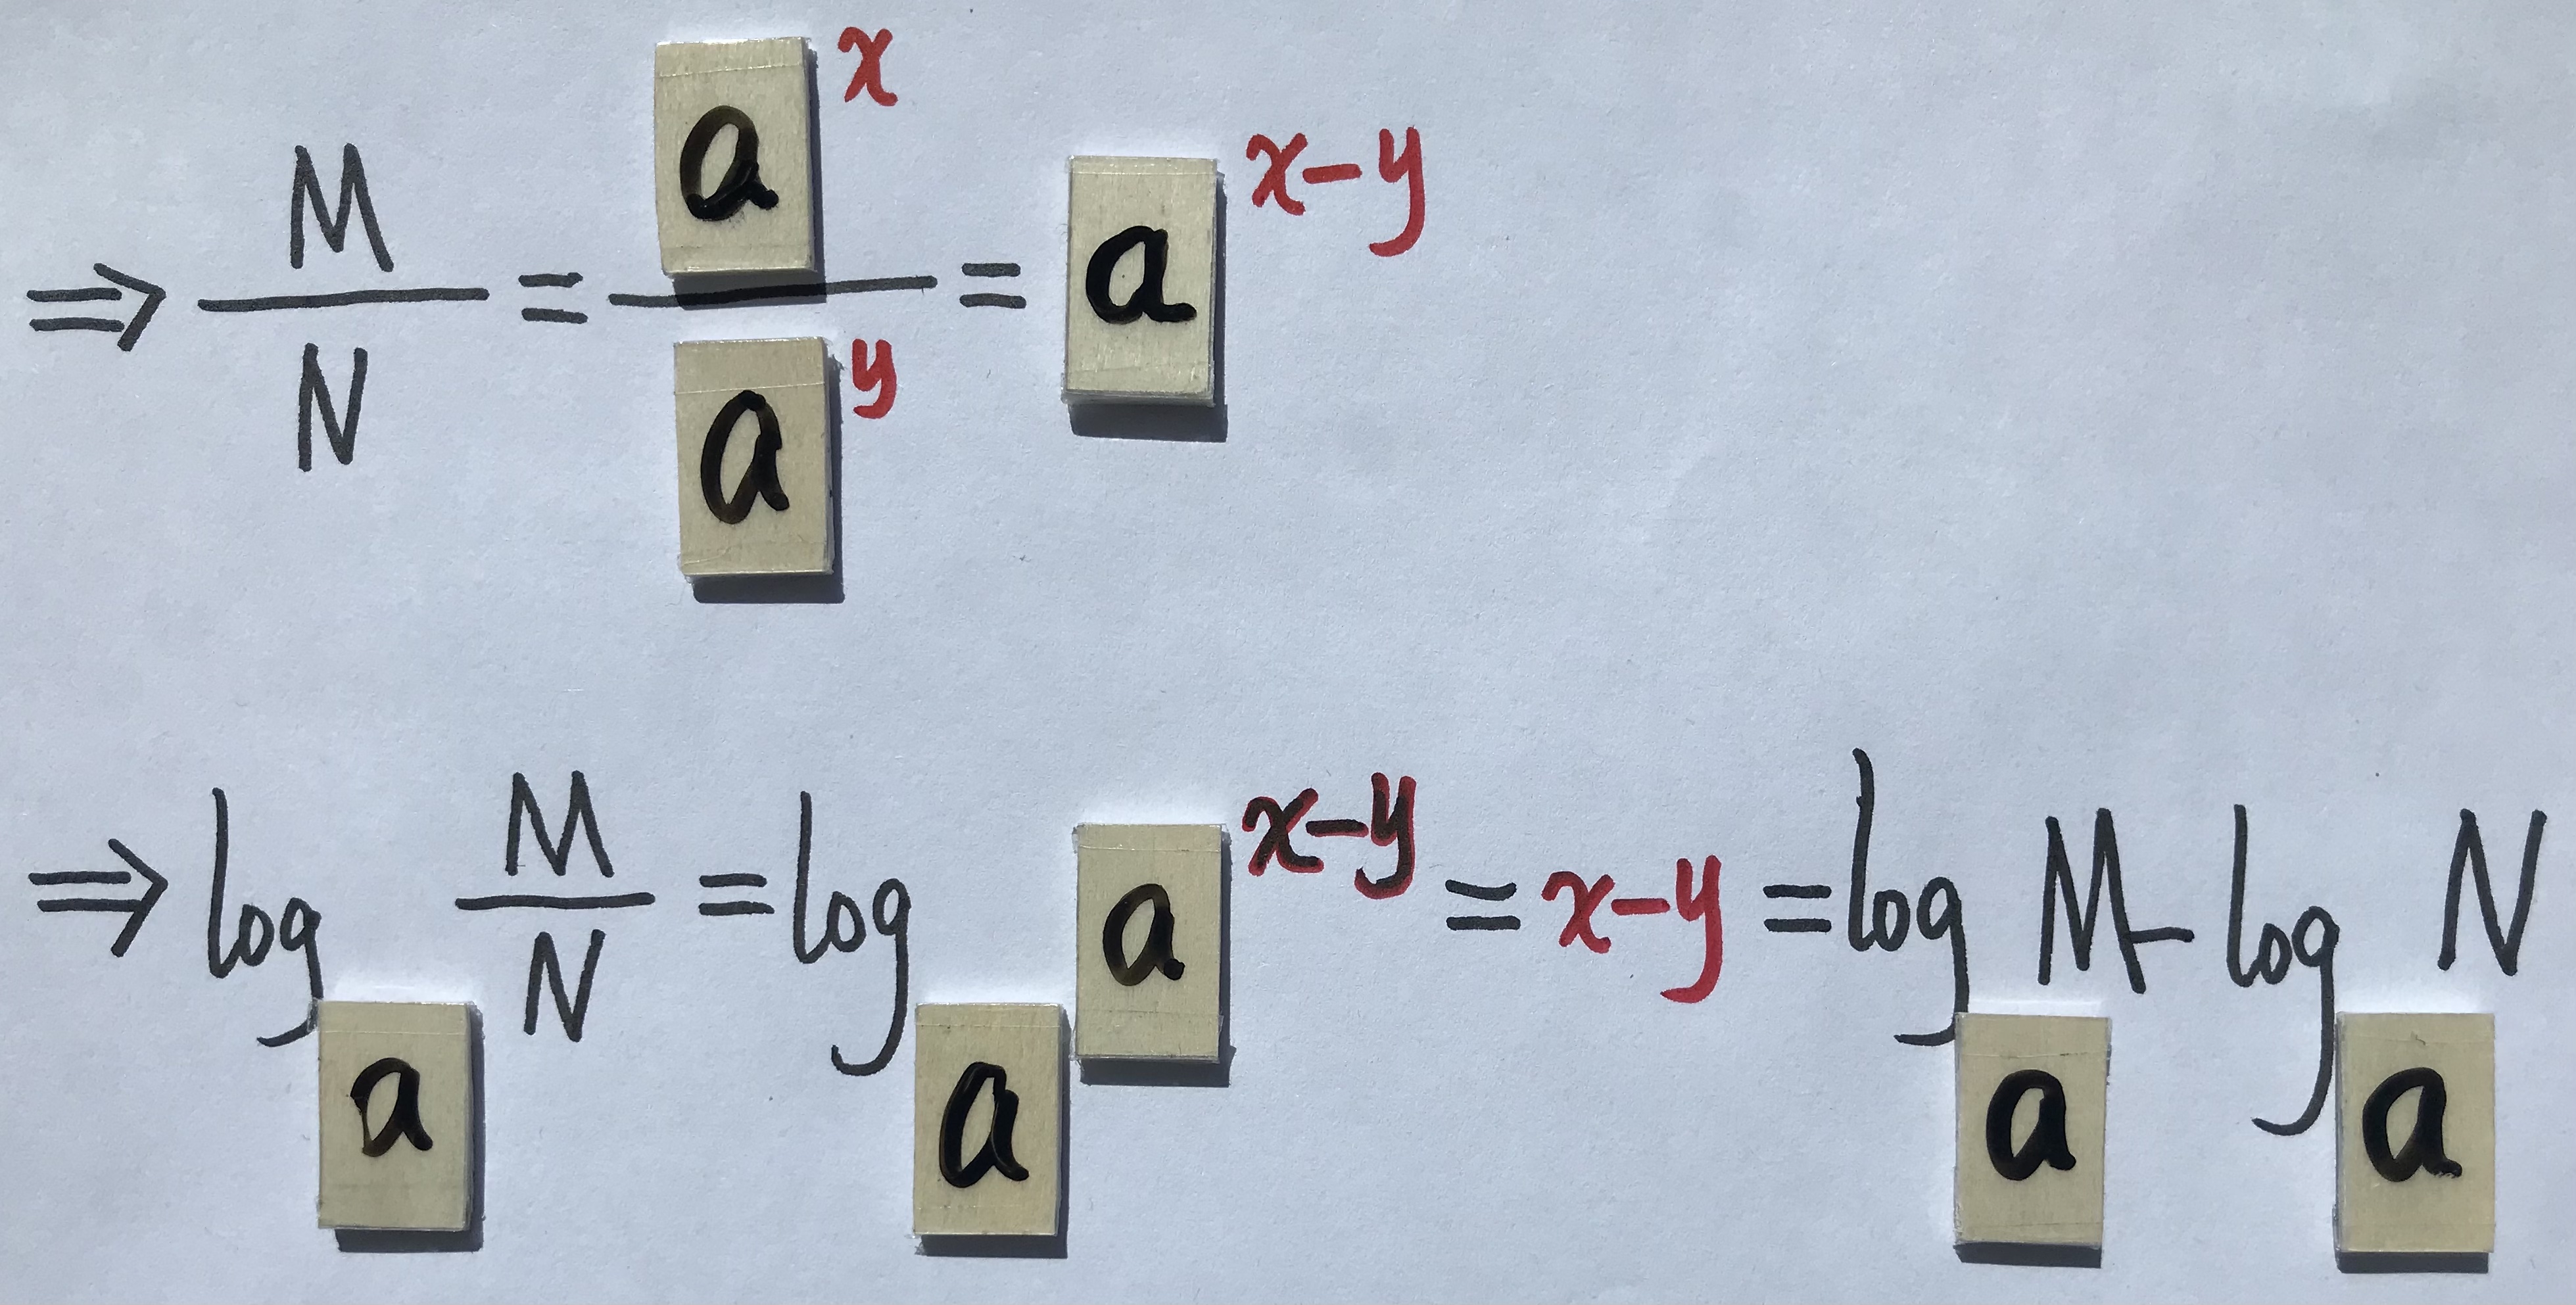 ⇒ M/N = a^x/a^y = a^(x-y)
⇒ log_a M/N = log_a a^(x-y) = x-y = log_a M - log_a N